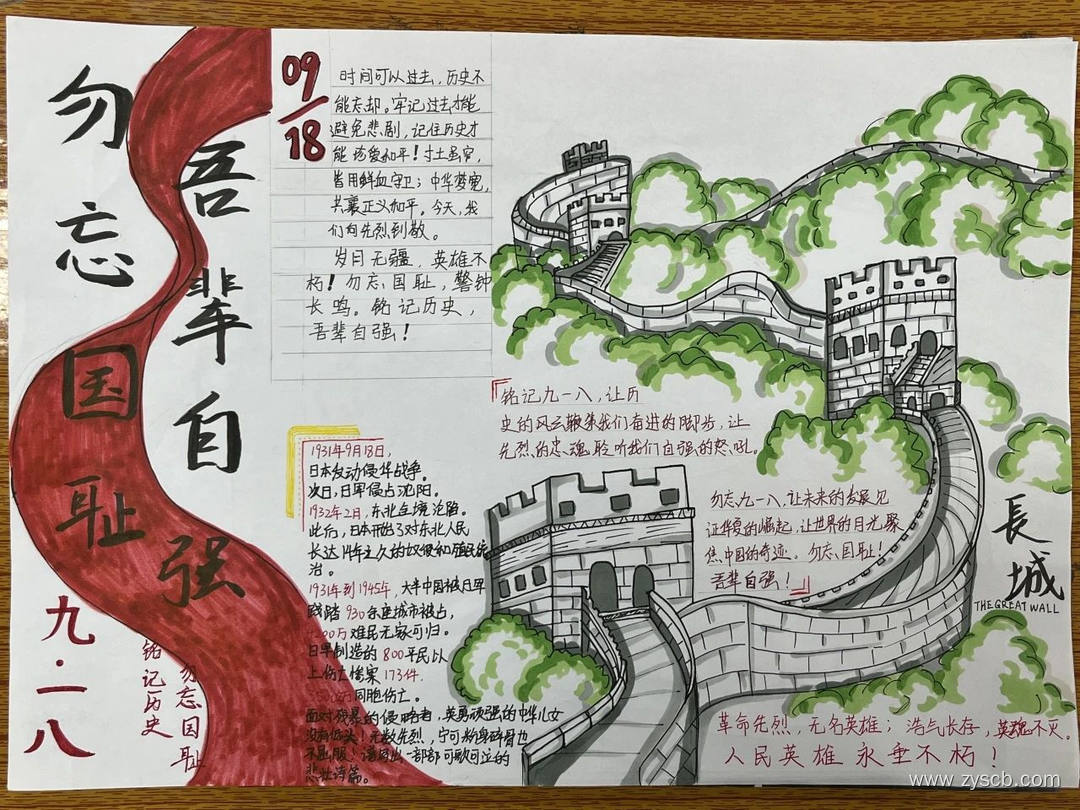 勿忘国耻
吾辈自强
九·一八
铭记历史
勿忘国耻
09/18
时间可以过去，历史不
能忘却。牢记过去才能
避免悲剧，记住历史才
能珍爱和平！寸土虽窄，
皆用鲜血守卫；中华梦宽，
共襄正义和平。今天，我
们向先烈致敬。
岁月无疆，英雄不
朽！勿忘国耻，警钟
长鸣。铭记历史，
吾辈自强！
铭记九一八，让历
史的风云鞭策我们奋进的脚步，让
先烈的忠魂聆听我们自强的怒吼。
勿忘九一八，让未来的发展见
证华夏的崛起，让世界的目光聚
焦中国的奇迹。勿忘国耻！
吾辈自强！
1931年9月18日，
日本发动侵华战争。
次日，日军侵占沈阳。
1932年2月，东北全境沦陷。
此后，日本开始了对东北人民
长达14年之久的奴役和殖民统
治。
1931年到1945年，大半中国被日军
践踏 930余座城市被占，
4200万难民无家可归。
日军制造的800平民以
上伤亡惨案173件.
同胞伤亡。
面对残暴的侵略者，英勇顽强的中华儿女
没有低头！无数先烈，宁可粉身碎骨也
不屈服！谱写出一部部可歌可泣的
悲壮诗篇。
長城
THE GREAT WALL
革命先烈，无名英雄；浩气长存，英魂不灭。
人民英雄永垂不朽！
www.zyscb.com